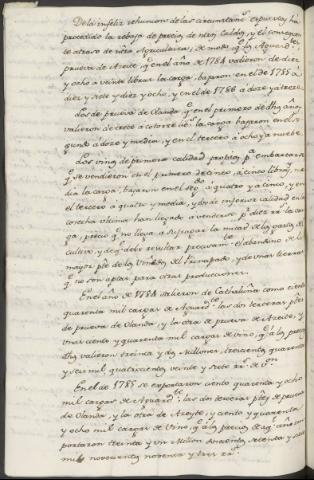 De la infeliz rehunion de las circunstans. expuestas, ha
procedido la rebaja de precios de ntros Caldos, y el consiguien-
te atraso de ntra Agricultura; de modo qe. los Aguardtes.
prueva de Azeite, qe. en el año de 1784 valieron de diez
y ocho a veinte libras la carga, bajaron en el de 1785 a
diez y siete y diez y ocho, y en el de 1786 a doze y a treze
dos de prueva de Olanda qe. en el primero de dhos. años
valieron de treze a catorce ls. la carga bajaron en el se-
gundo a doze y media, y en el tercero a ocho y a nueve
dos vinos de primera calidad propios pa. embarcarse
qe. se vendieron en el primero de cinco, a cinco libras, me-
dia la carga, bajaron en el segdo. a quatro y a cinco, y en
el tercero a quatro y media, y los de inferior calidad en la
cosecha ultima han llegado a venderse pr. diez rrs. la car-
ga, precio qe. no llega a la mitad de los gastos del
cultivo, y de qe. debe resultar precisamte. el abandono de la
mayor pte. de los Viñedos del Principado, y de unas tierras
qe. no son aptas para otras producciones.
En el año de 1784 salieron de Cathaluña como ciento
quarenta mil cargas de Aguardte. las dos terceras ptes.
de prueva de Olanda, y la otra de prueva de Azeite, y
unas ciento y quarenta mil cargas de vino, qe. a los precios
dhos. valieron treinta y dos Millones, trescientos quarenta
y seis mil, quatrocientos, veinte y siete rrs. de von.
En el de 1785 se exportaron ciento quarenta y ocho
mil cargas de Aguardte. las dos terceras ptes. de prueva
de Olanda, y la otra de Azeyte, y ciento y quarenta
y ocho mil cargas de Vino, qe. a los precios de aql. año im-
portaron treinta y un Millon
mil novecientos noventa y tres rrs.